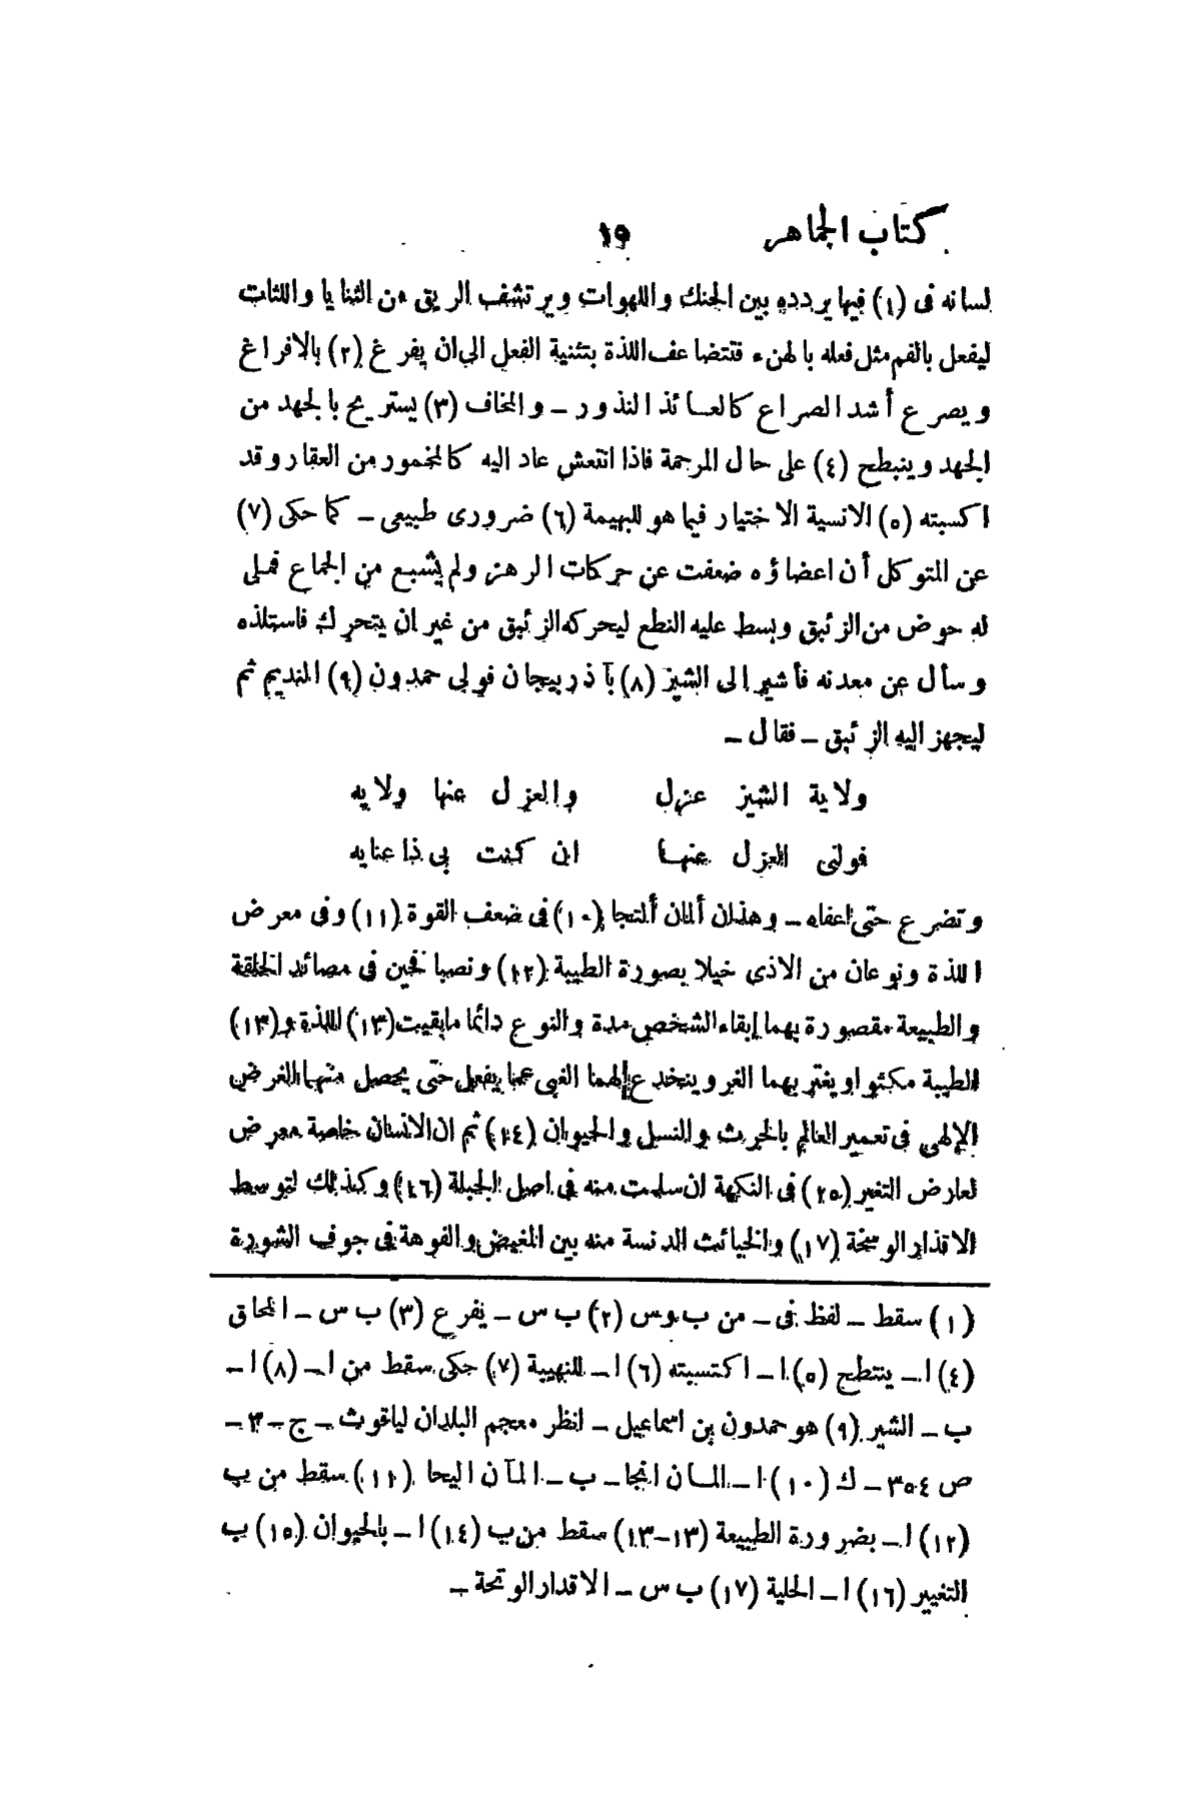 كتاب الجماهر ١٩
لسانه فى (١) فيها يردده بين الحنك واللهوات ويرتشف الريق من الثنايا واللثات
ليفعل بالفم مثل فعله بالهنء فتتضاعف اللذة بتثنية الفعل الى ان يفرغ (٢) بالافراغ
ويصرع أشد الصراع كالعائذ النذور – والخاف (٣) يستريح بالجهد من
الجهد وينبطح (٤) على حال المرجمة فاذا انتعش عاد اليه كالمخمور من العقار وقد
اكسبته (٥) الانسية الاختيار فيما هو للبهيمة (٦) ضرورى طبيعى – كما حكى (٧)
عن المتوكل أن اعضاؤه ضعفت عن حركات الرهز ولم يشبع من الجماع فملى
له حوض من الزئبق وبسط عليه النطع ليحركه الزئبق من غير ان يتحرك فاستلذه
وسأل عن معدنه فأشير الى الشيز (٨) بآذربيجان فولى حمدون (٩) النديم ثم
ليجهز اليه الزئبق – فقال –
ولاية الشيز عزل والعزل عنها ولايه
فولنى العزل عنها ان كنت بى ذا عنايه
وتضرع حتى اعفاه – وهذان ألمان ألتجا (١٠) فى ضعف القوة (١١) وفى معرض
اللذة ونوعان من الاذى خيلا بصورة الطيبة (١٢) ونصبا فخين فى مصائد الخلقة
والطبيعة مقصورة بهما إبقاء الشخص مدة والنوع دائما مابقيت (١٣) اللذة و (١٣)
الطيبة مكثوا ويغتر بهما الغر وينخدع لهمنا الغبى عما يفعل حتى يحصل منهما الغرض
الإلهى فى تعمير العالم بالحرث والنسل والحيوان (١٤) ثم ان الانسان خاصة معرض
لعارض التغير (١٥) فى النكهة ان سلمت منه فى اصل الجبلة (١٦) وكذلك لتوسط
الاقذار الوسخة (١٧) والخبائث الدنسة منه بين المغيض والفوهة فى جوف الشورة
(١) سقط – لفظ فى – من ب وس (٢) ب س – يفرع (٣) ب س – المحاق
(٤) ا – ينتطح (٥) ا – اكتسبته (٦) ا – للنهيبة (٧) حكى سقط من ا – (٨) ا –
ب – الشير (٩) هو حمدون بن اسماعيل – انظر معجم البلدان لياقوت – ج – ٣ –
ص ٣٥٤ – ك (١٠) ا – المان انجا – ب – المآن اليحا (١١) سقط من ب
(١٢) ا – بضرورة الطبيعة (١٣–١٣) سقط من ب (١٤) ا – بالحيوان (١٥) ب
التغيير (١٦) ا – الحلية (١٧) ب س – الاقدار الوتحة –